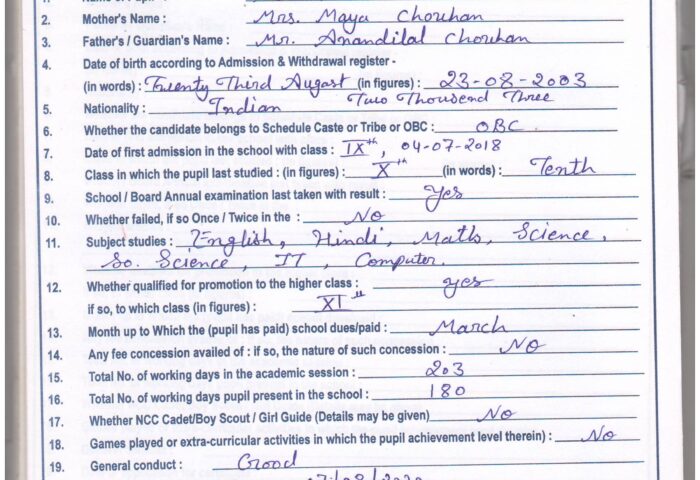 2. Mother's Name : Mrs. Maya Chouhan
3. Father's / Guardian's Name : Mr. Anandilal Chouhan
4. Date of birth according to Admission & Withdrawal register -
(in words) : Twenty Third August (in figures) : 23-08-2003
Two Thousend Three
5. Nationality : Indian
6. Whether the candidate belongs to Schedule Caste or Tribe or OBC : OBC
7. Date of first admission in the school with class : IXth, 04-07-2018
8. Class in which the pupil last studied : (in figures) : Xth (in words) : Tenth
9. School / Board Annual examination last taken with result : Yes
10. Whether failed, if so Once / Twice in the : No
11. Subject studies : English, Hindi, Maths, Science,
So. Science, IT, Computer.
12. Whether qualified for promotion to the higher class : yes
if so, to which class (in figures) : XI
13. Month up to Which the (pupil has paid) school dues/paid : March
14. Any fee concession availed of : if so, the nature of such concession : No
15. Total No. of working days in the academic session : 203
16. Total No. of working days pupil present in the school : 180
17. Whether NCC Cadet/Boy Scout / Girl Guide (Details may be given) No
18. Games played or extra-curricular activities in which the pupil achievement level therein) : No
19. General conduct : Good